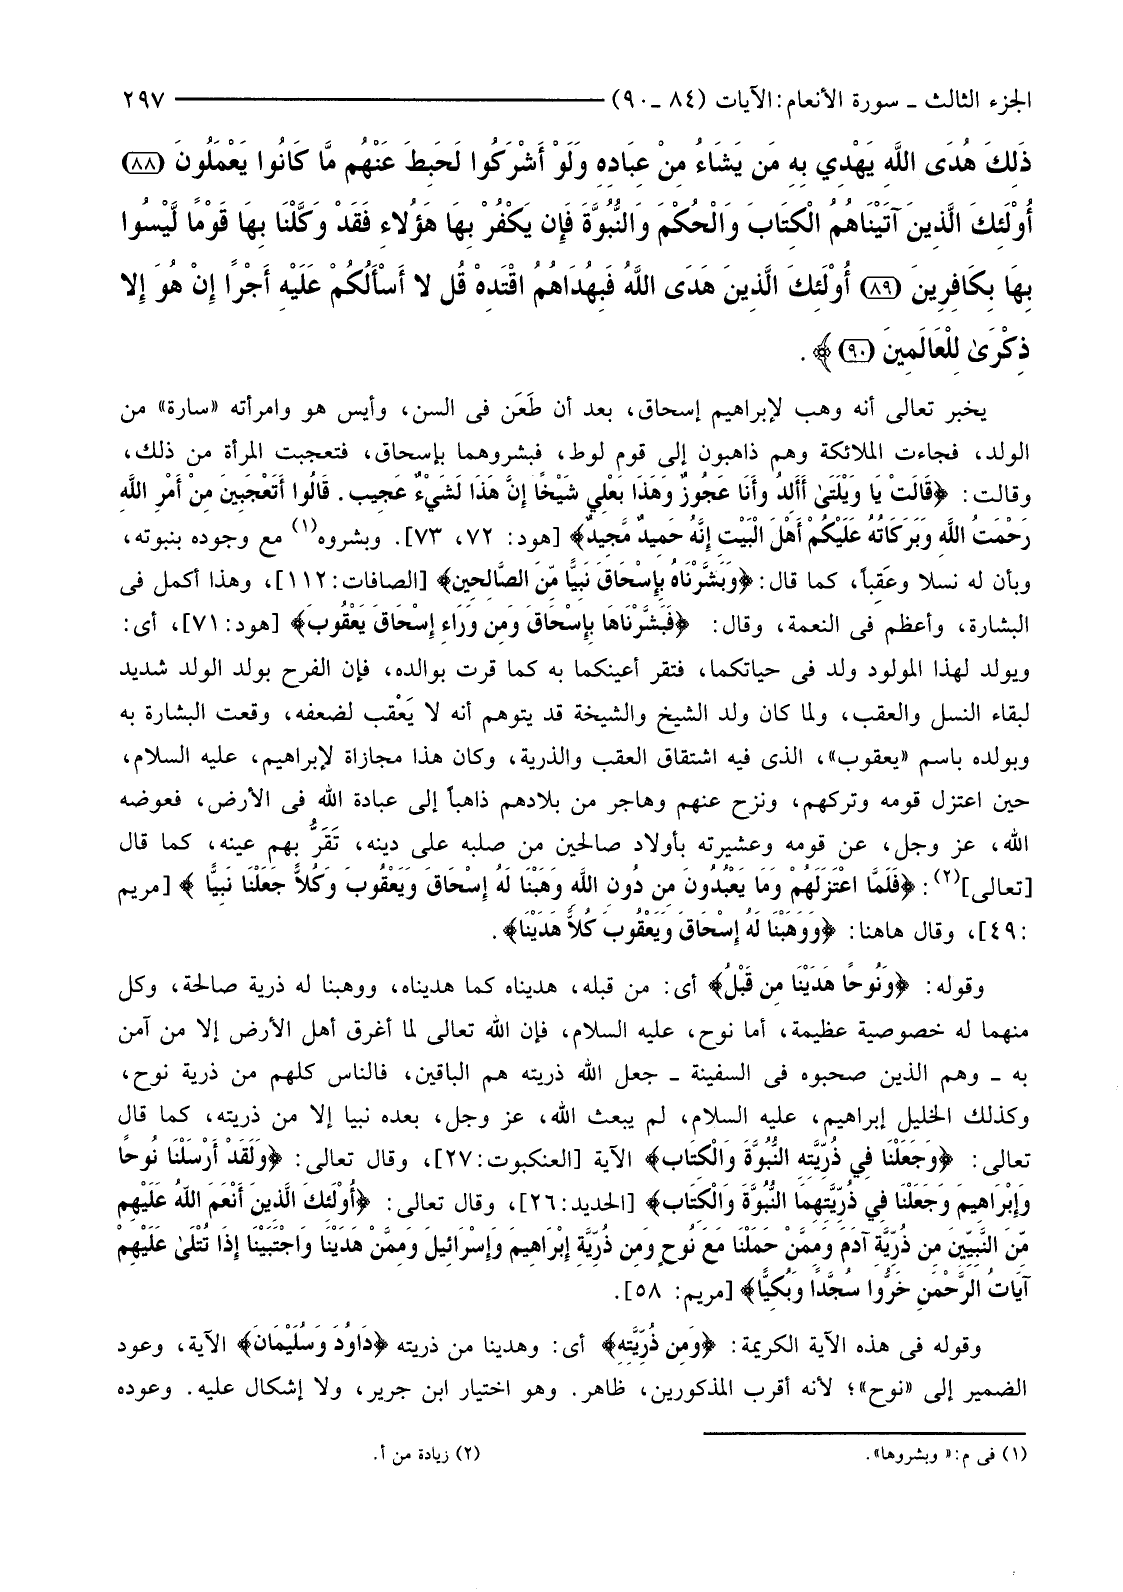 الجزء الثالث ـ سورة الأنعام: الآيات (٨٤ ـ ٩٠) ٢٩٧
ذَلِكَ هُدَى اللَّهِ يَهْدِي بِهِ مَن يَشَاءُ مِنْ عِبَادِهِ وَلَوْ أَشْرَكُوا لَحَبِطَ عَنْهُم مَّا كَانُوا يَعْمَلُونَ (٨٨)
أُوْلَئِكَ الَّذِينَ آتَيْنَاهُمُ الْكِتَابَ وَالْحُكْمَ وَالنُّبُوَّةَ فَإِن يَكْفُرْ بِهَا هَؤُلاءِ فَقَدْ وَكَّلْنَا بِهَا قَوْمًا لَّيْسُوا
بِهَا بِكَافِرِينَ (٨٩) أُوْلَئِكَ الَّذِينَ هَدَى اللَّهُ فَبِهُدَاهُمُ اقْتَدِهْ قُل لا أَسْأَلُكُمْ عَلَيْهِ أَجْرًا إِنْ هُوَ إِلا
ذِكْرَىٰ لِلْعَالَمِينَ (٩٠) ﴾ .
يخبر تعالى أنه وهب لإبراهيم إسحاق، بعد أن طَعَن فى السن، وأيس هو وامرأته «سارة» من
الولد، فجاءت الملائكة وهم ذاهبون إلى قوم لوط، فبشروهما بإسحاق، فتعجبت المرأة من ذلك،
وقالت: ﴿قَالَتْ يَا وَيْلَتَىٰ أَأَلِدُ وَأَنَا عَجُوزٌ وَهَذَا بَعْلِي شَيْخًا إِنَّ هَذَا لَشَيْءٌ عَجِيب. قَالُوا أَتَعْجَبِينَ مِنْ أَمْرِ اللَّهِ
رَحْمَتُ اللَّهِ وَبَرَكَاتُهُ عَلَيْكُمْ أَهْلَ الْبَيْتِ إِنَّهُ حَمِيدٌ مَّجِيدٌ﴾ [هود: ٧٢، ٧٣]. وبشروه(١) مع وجوده بنبوته،
وبأن له نسلا وعَقِباً، كما قال: ﴿وَبَشَّرْنَاهُ بِإِسْحَاقَ نَبِيًّا مِّنَ الصَّالِحِين﴾ [الصافات:١١٢]، وهذا أكمل فى
البشارة، وأعظم فى النعمة، وقال: ﴿فَبَشَّرْنَاهَا بِإِسْحَاقَ وَمِن وَرَاءِ إِسْحَاقَ يَعْقُوبَ﴾ [هود:٧١]، أى:
ويولد لهذا المولود ولد فى حياتكما، فتقر أعينكما به كما قرت بوالده، فإن الفرح بولد الولد شديد
لبقاء النسل والعقب، ولما كان ولد الشيخ والشيخة قد يتوهم أنه لا يَعْقب لضعفه، وقعت البشارة به
وبولده باسم «يعقوب»، الذى فيه اشتقاق العقب والذرية، وكان هذا مجازاة لإبراهيم، عليه السلام،
حين اعتزل قومه وتركهم، ونزح عنهم وهاجر من بلادهم ذاهباً إلى عبادة الله فى الأرض، فعوضه
الله، عز وجل، عن قومه وعشيرته بأولاد صالحين من صلبه على دينه، تَقَرُّ بهم عينه، كما قال
[تعالى](٢): ﴿فَلَمَّا اعْتَزَلَهُمْ وَمَا يَعْبُدُونَ مِن دُونِ اللَّهِ وَهَبْنَا لَهُ إِسْحَاقَ وَيَعْقُوبَ وَكُلاًّ جَعَلْنَا نَبِيًّا ﴾ [مريم
:٤٩]، وقال هاهنا: ﴿وَوَهَبْنَا لَهُ إِسْحَاقَ وَيَعْقُوبَ كُلاًّ هَدَيْنَا﴾.
وقوله: ﴿وَنُوحًا هَدَيْنَا مِن قَبْلُ﴾ أى: من قبله، هديناه كما هديناه، ووهبنا له ذرية صالحة، وكل
منهما له خصوصية عظيمة، أما نوح، عليه السلام، فإن الله تعالى لما أغرق أهل الأرض إلا من آمن
به ـ وهم الذين صحبوه فى السفينة ـ جعل الله ذريته هم الباقين، فالناس كلهم من ذرية نوح،
وكذلك الخليل إبراهيم، عليه السلام، لم يبعث الله، عز وجل، بعده نبيا إلا من ذريته، كما قال
تعالى: ﴿وَجَعَلْنَا فِي ذُرِّيَّتِهِ النُّبُوَّةَ وَالْكِتَابَ﴾ الآية [العنكبوت:٢٧]، وقال تعالى: ﴿وَلَقَدْ أَرْسَلْنَا نُوحًا
وَإِبْرَاهِيمَ وَجَعَلْنَا فِي ذُرِّيَّتِهِمَا النُّبُوَّةَ وَالْكِتَاب﴾ [الحديد:٢٦]، وقال تعالى: ﴿أُوْلَئِكَ الَّذِينَ أَنْعَمَ اللَّهُ عَلَيْهِم
مِّنَ النَّبِيِّينَ مِن ذُرِّيَّةِ آدَمَ وَمِمَّنْ حَمَلْنَا مَعَ نُوحٍ وَمِن ذُرِّيَّةِ إِبْرَاهِيمَ وَإِسْرَائِيلَ وَمِمَّنْ هَدَيْنَا وَاجْتَبَيْنَا إِذَا تُتْلَىٰ عَلَيْهِمْ
آيَاتُ الرَّحْمَنِ خَرُّوا سُجَّدًا وَبُكِيًّا﴾ [مريم: ٥٨].
وقوله فى هذه الآية الكريمة: ﴿وَمِن ذُرِّيَّتِهِ﴾ أى: وهدينا من ذريته ﴿دَاوُدَ وَسُلَيْمَانَ﴾ الآية، وعود
الضمير إلى «نوح»؛ لأنه أقرب المذكورين، ظاهر. وهو اختيار ابن جرير، ولا إشكال عليه. وعوده
(١) فى م: « وبشروها». (٢) زيادة من أ.